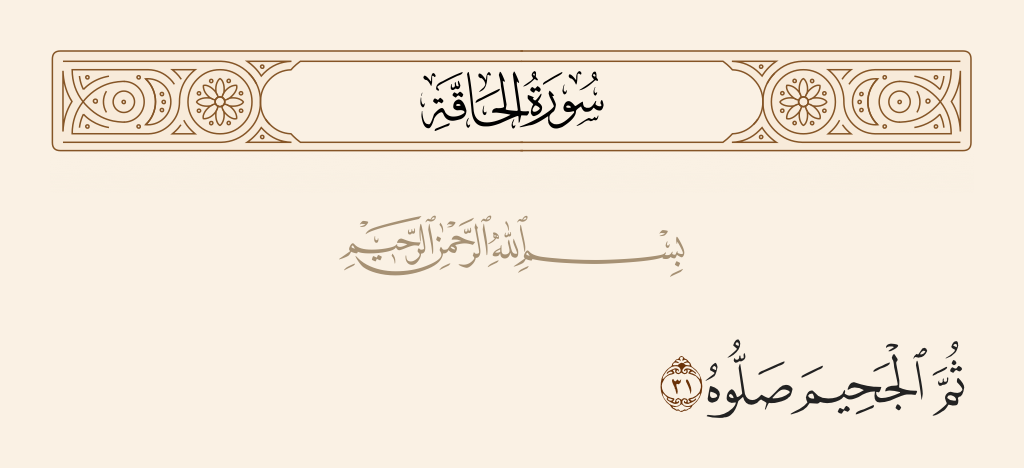 سُورَةُ الحَاقَّةِ
بِسْمِ ٱللَّهِ ٱلرَّحْمَٰنِ ٱلرَّحِيمِ
ثُمَّ ٱلْجَحِيمَ صَلُّوهُ ٣١